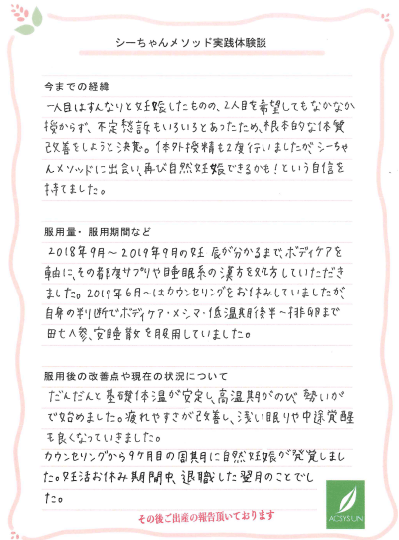 シーちゃんメソッド実践体験談
今までの経緯
一人目はすんなりと妊娠したものの、2人目を希望してもなかなか
授からず、不定愁訴もいろいろとあったため、根本的な体質
改善をしようと決意。体外授精も2度行いましたが、シーちゃ
んメソッドに出会い、再び自然妊娠できるかも!という自信を
持てました。
服用量・服用期間など
2018年9月～2019年9月の妊娠が分かるまで、ボディケアを
軸に、その都度サプリや睡眠系の漢方を処方していただき
ました。2019年6月～はカウンセリングをお休みしていましたが、
自身の判断でボディケア・メシマ・低温期後半～排卵まで
田七人参、安睡散を服用していました。
服用後の改善点や現在の状況について
だんだんと基礎体温が安定し、高温期がのび 勢いが
で始めました。疲れやすさが改善し、浅い眠りや中途覚醒
も良くなっていきました。
カウンセリングから9ケ月目の周期に自然妊娠が発覚しまし
た。妊活お休み期間中、退職した翌月のことでし
た。
その後ご出産の報告頂いております
ACSYSUN